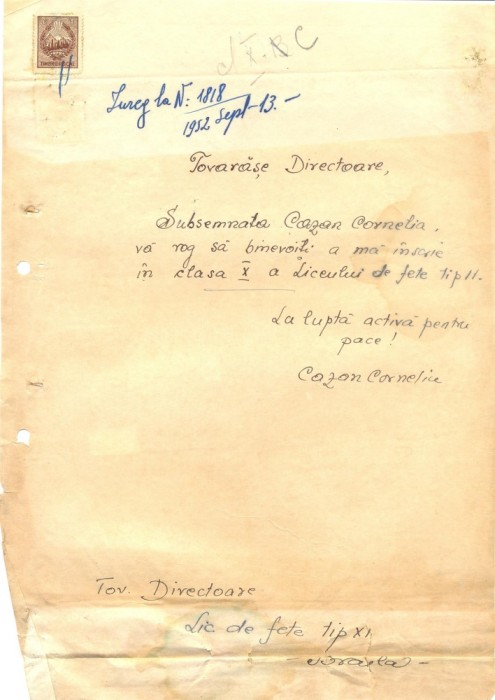 X B C
Inreg la N: 1818
1952 Sept-13.-
Tovarășe Directoare,
Subsemnata Cazan Cornelia,
vă rog să binevoiți a mă înscrie
în clasa X a Liceului de fete tip 11.
La luptă activă pentru
pace!
Cazan Cornelia
Tov. Directoare
Lic de fete tip XI.